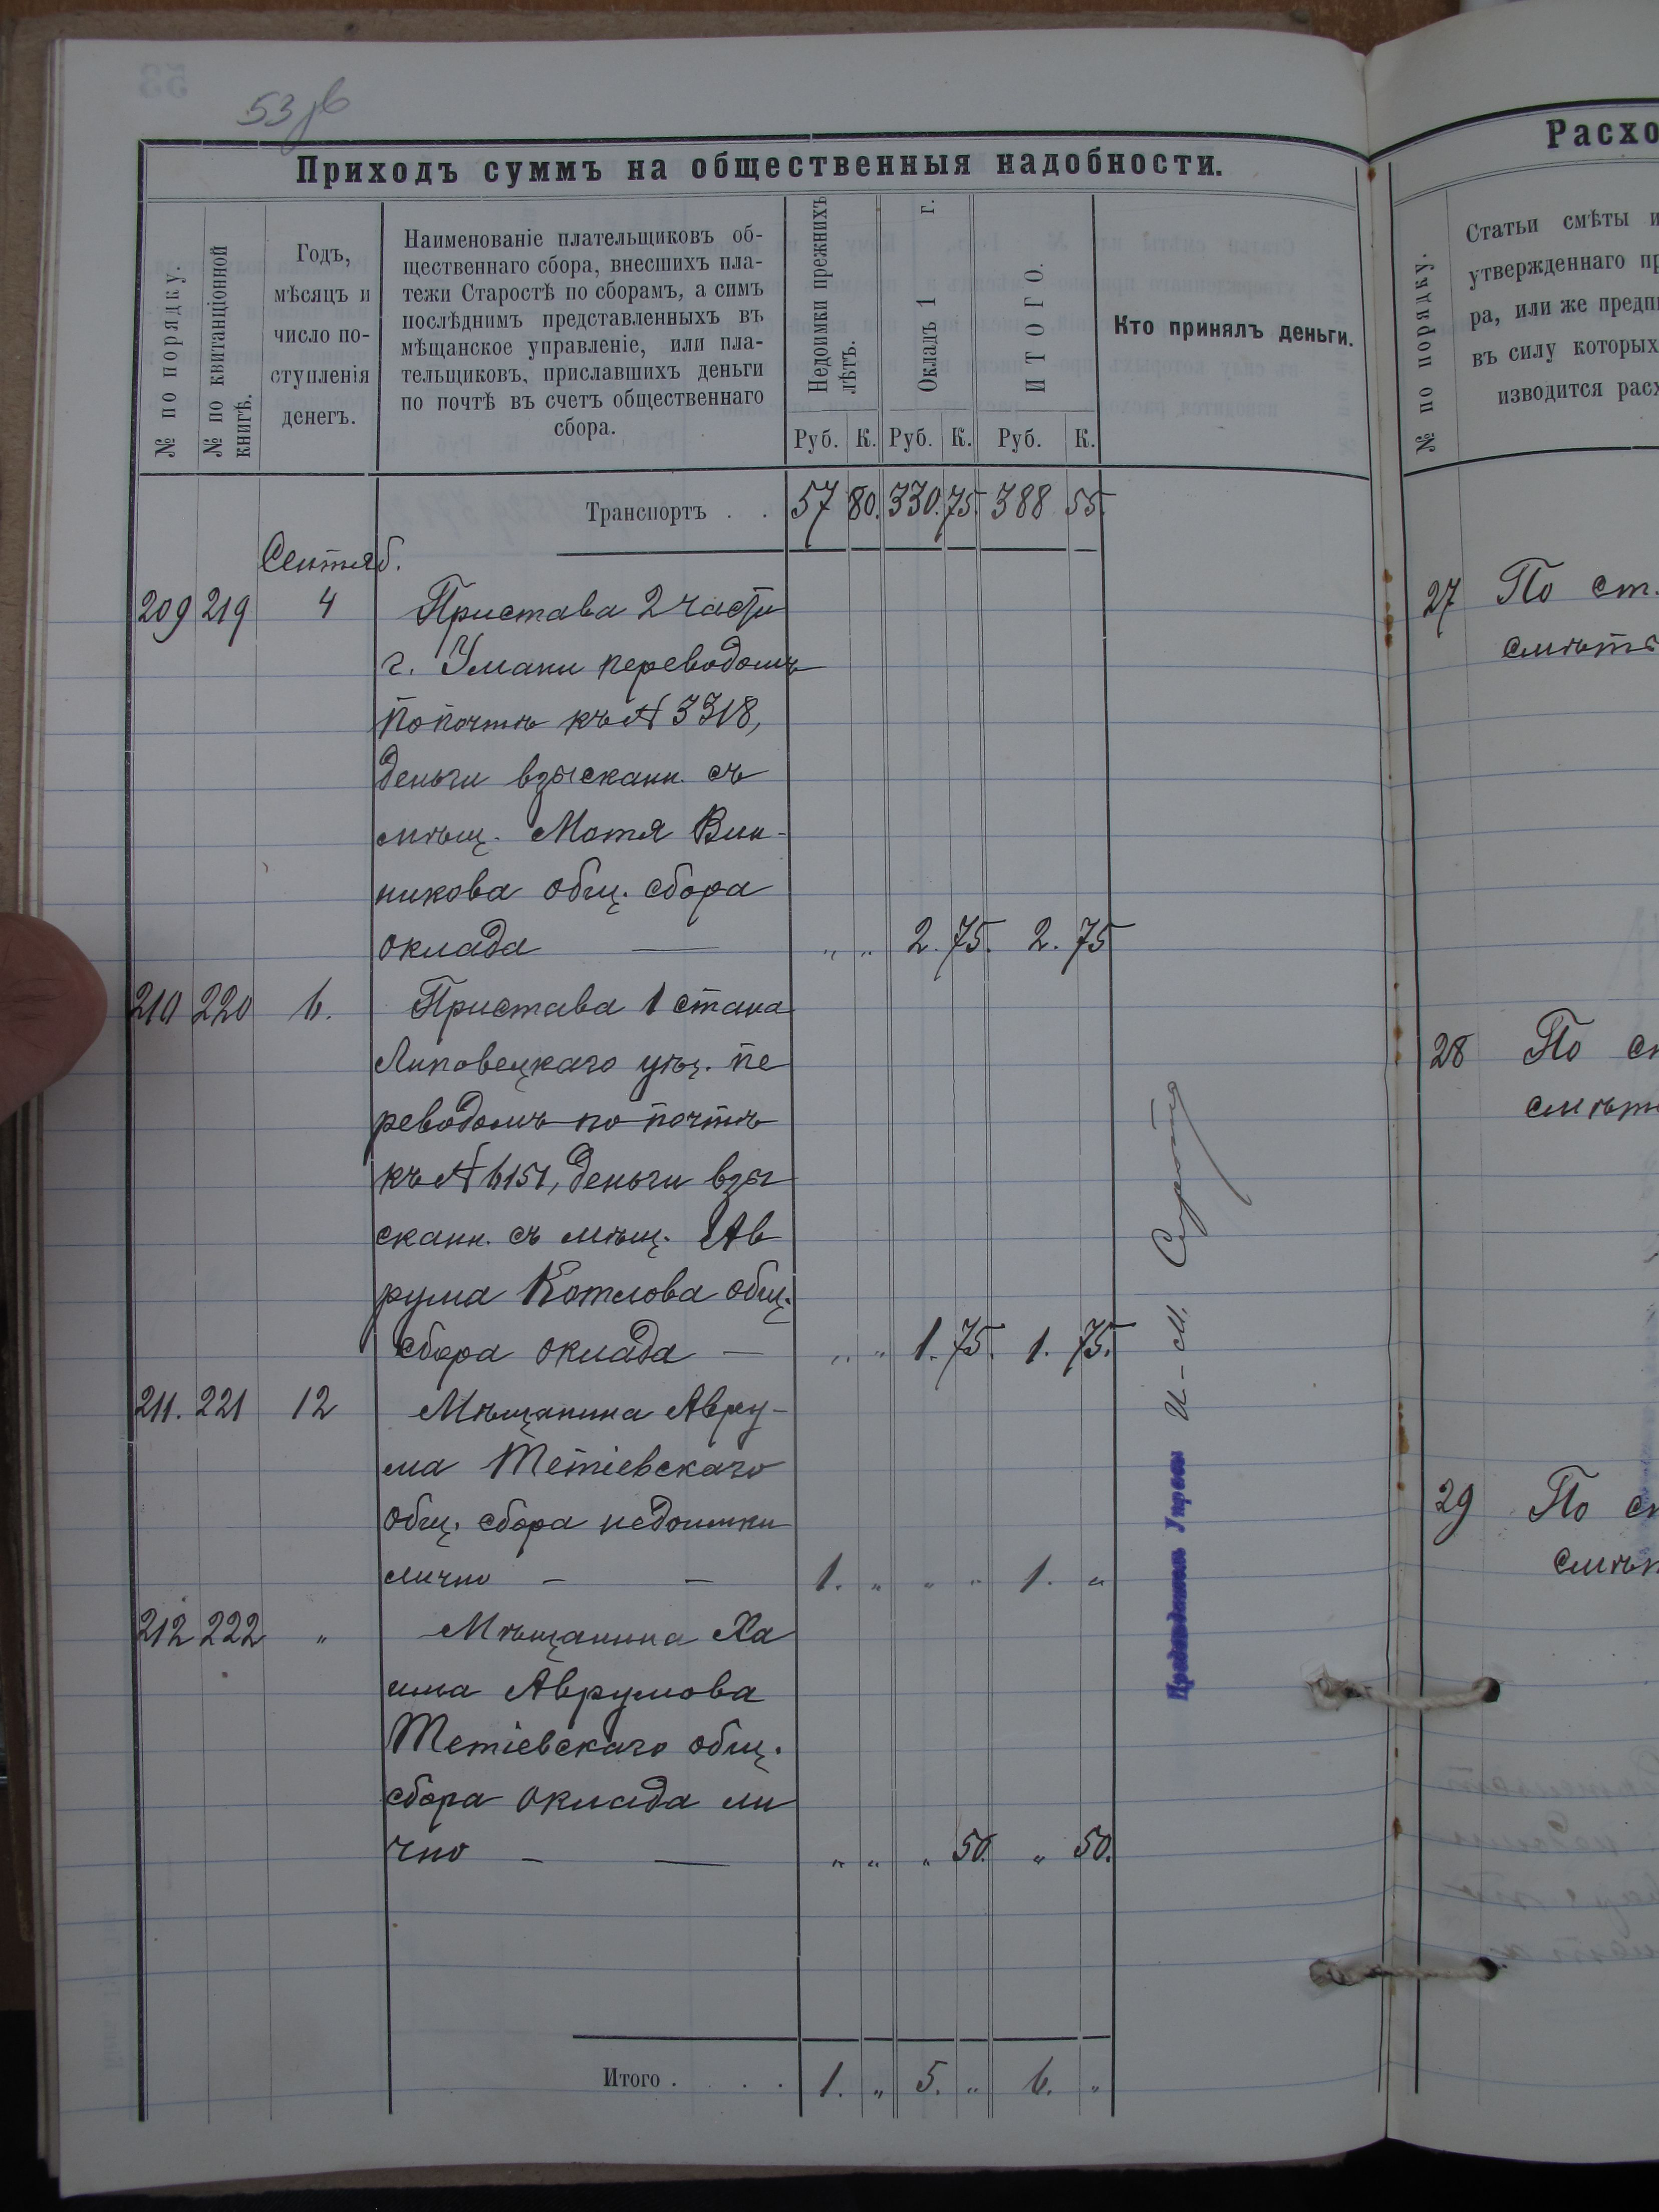 53 об
Приходъ суммъ на общественныя надобности.
№ по порядку.
№ по квитанціонной
книгѣ.
Годъ,
мѣсяцъ и
число по-
ступленія
денегъ.
Наименованіе плательщиковъ об-
щественнаго сбора, внесшихъ пла-
тежи Старостѣ по сборамъ, а симъ
послѣднимъ представленныхъ въ
мѣщанское управленіе, или пла-
тельщиковъ, приславшихъ деньги
по почтѣ въ счетъ общественнаго
сбора.
Недоимки прежнихъ
лѣтъ.
Окладъ 1 г.
ИТОГО.
Руб. К. Руб. К. Руб. К.
Кто принялъ деньги.
Транспортъ . . 57 80. 330. 75. 388 55.
Сентяб.
209 219 4 Пристава 2 части
г. Умани переводомъ
по почтѣ къ № 3318,
деньги взыскан. съ
мѣщ. Мотя Вин-
никова общ. сбора
оклада — „ „ 2. 75. 2. 75
210 220 6. Пристава 1 стана
Липовецкаго уѣз. пе
реводомъ по почтѣ
къ № 6151, деньги взы
сканн. съ мѣщ. Ав
рума Котлова общ.
сбора оклада — „ „ 1. 75. 1. 75.
211. 221 12 Мѣщанина Авру-
ма Тетіевскаго
общ. сбора недоимки
лично — — 1. „ „ „ 1. „
212 222 „ Мѣщанина Ха
има Аврумова
Тетіевскаго общ.
сбора оклада ли
чно — — „ „ „ 50. „ 50.
Итого . . . . 1. „ 5. „ 6. „
И-М.
Расхо
№ по порядку.
Статьи смѣты и
утвержденнаго пр
ра, или же предпи
въ силу которыхъ
изводится расх
27 По ст.
смѣтѣ
28 По
29 По